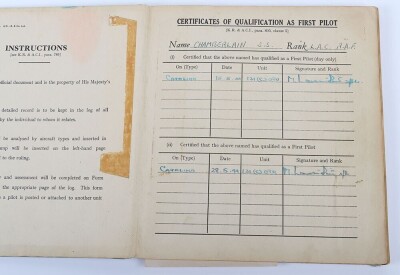 INSTRUCTIONS
(see K.R. & A.C.I., para. 768)
official document and is the property of His Majesty's
detailed record is to be kept in the log of all
by the individual to whom it relates.
be analysed by aircraft types and inserted in
amp will be inserted on the left-hand page
to the ruling.
y and assessment will be completed on Form
the appropriate page of the log. This form
a pilot is posted or attached to another unit
CERTIFICATES OF QUALIFICATION AS FIRST PILOT
(K.R. & A.C.I., para. 805, clause
Name CHAMBERLAIN Rank L.A.C.
(i) Certified that the above named has qualified as a First Pilot (day only)
On (Type) Date Unit Signature and Rank
CATALINA
Certified that the above named has qualified as a First Pilot
On (Type) Date Unit Signature and Rank
CATALINA 28.5.44